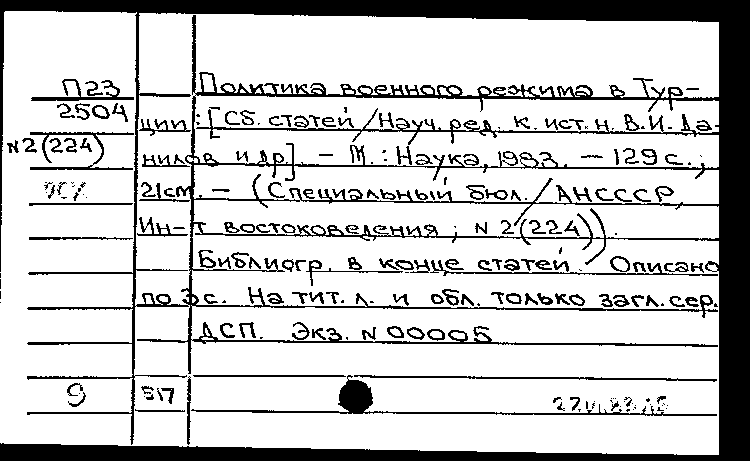 П23 Политика военного режима в Тур-
2504 ции: [Сб. статей / Науч. ред. к. ист. н. В.И. Да-
N2(224) нилов и др.]. - М.: Наука, 1983. - 129 с.;
21 см. - (Специальный бюл. / АН СССР,
Ин-т востоковедения; N 2(224)).
Библиогр. в конце статей. Описано
по 3 с. На тит. л. и обл. только загл. сер.
ДСП. Экз. N 00005
9 517